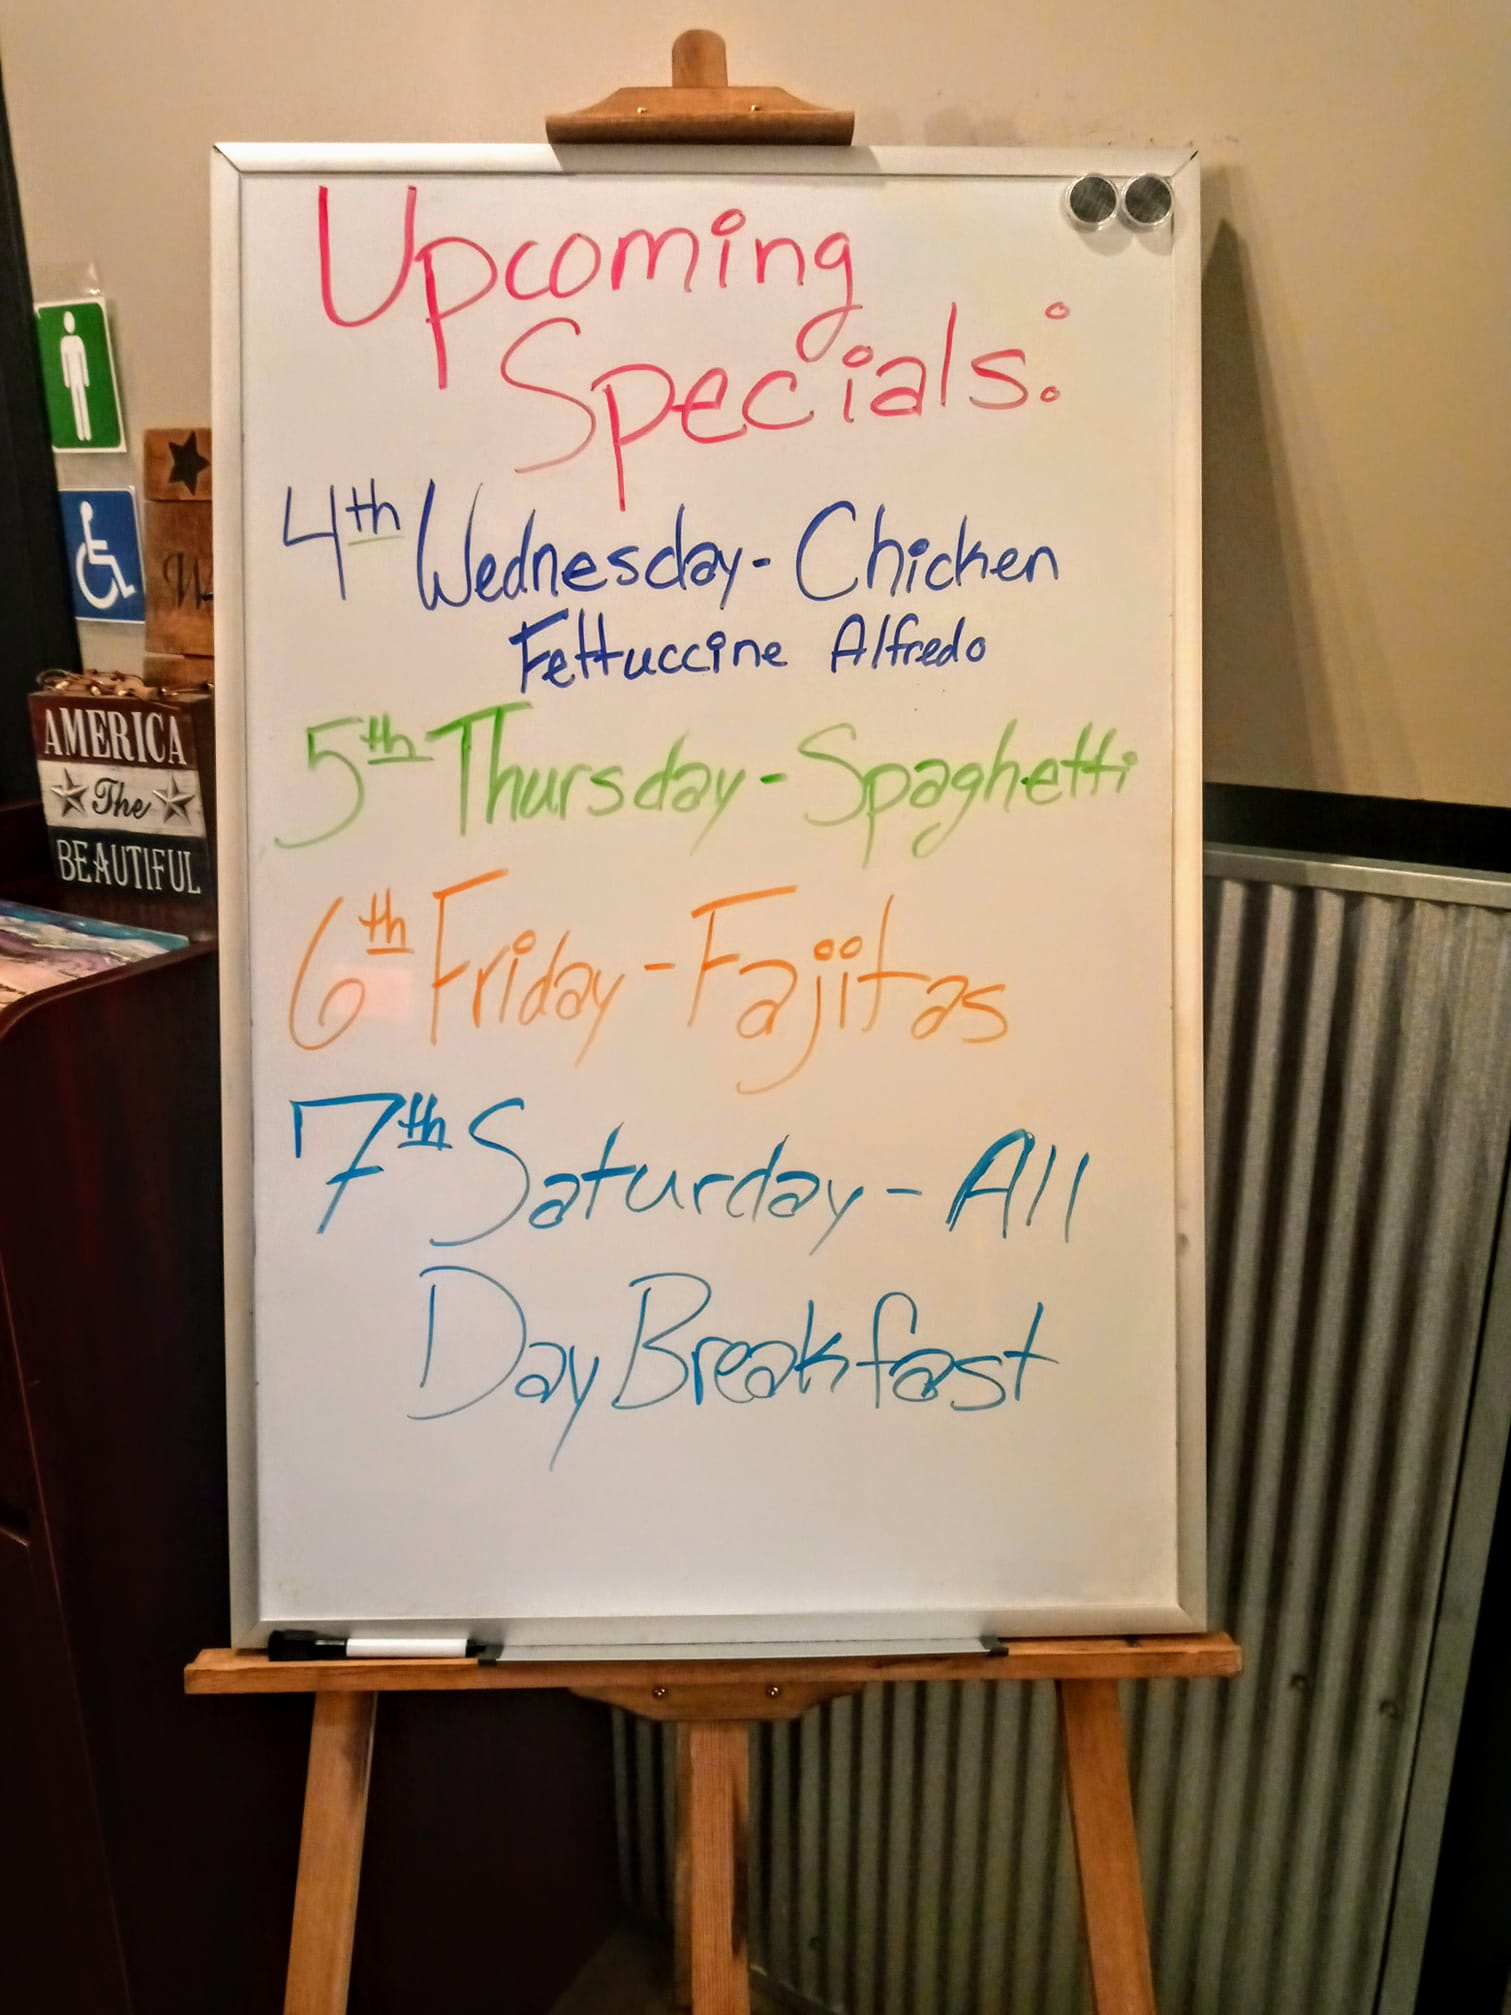 Upcoming
Specials:
4th Wednesday- Chicken
Fettuccine Alfredo
5th Thursday - Spaghetti
6th Friday - Fajitas
7th Saturday - All
Day Breakfast
AMERICA
The
BEAUTIFUL